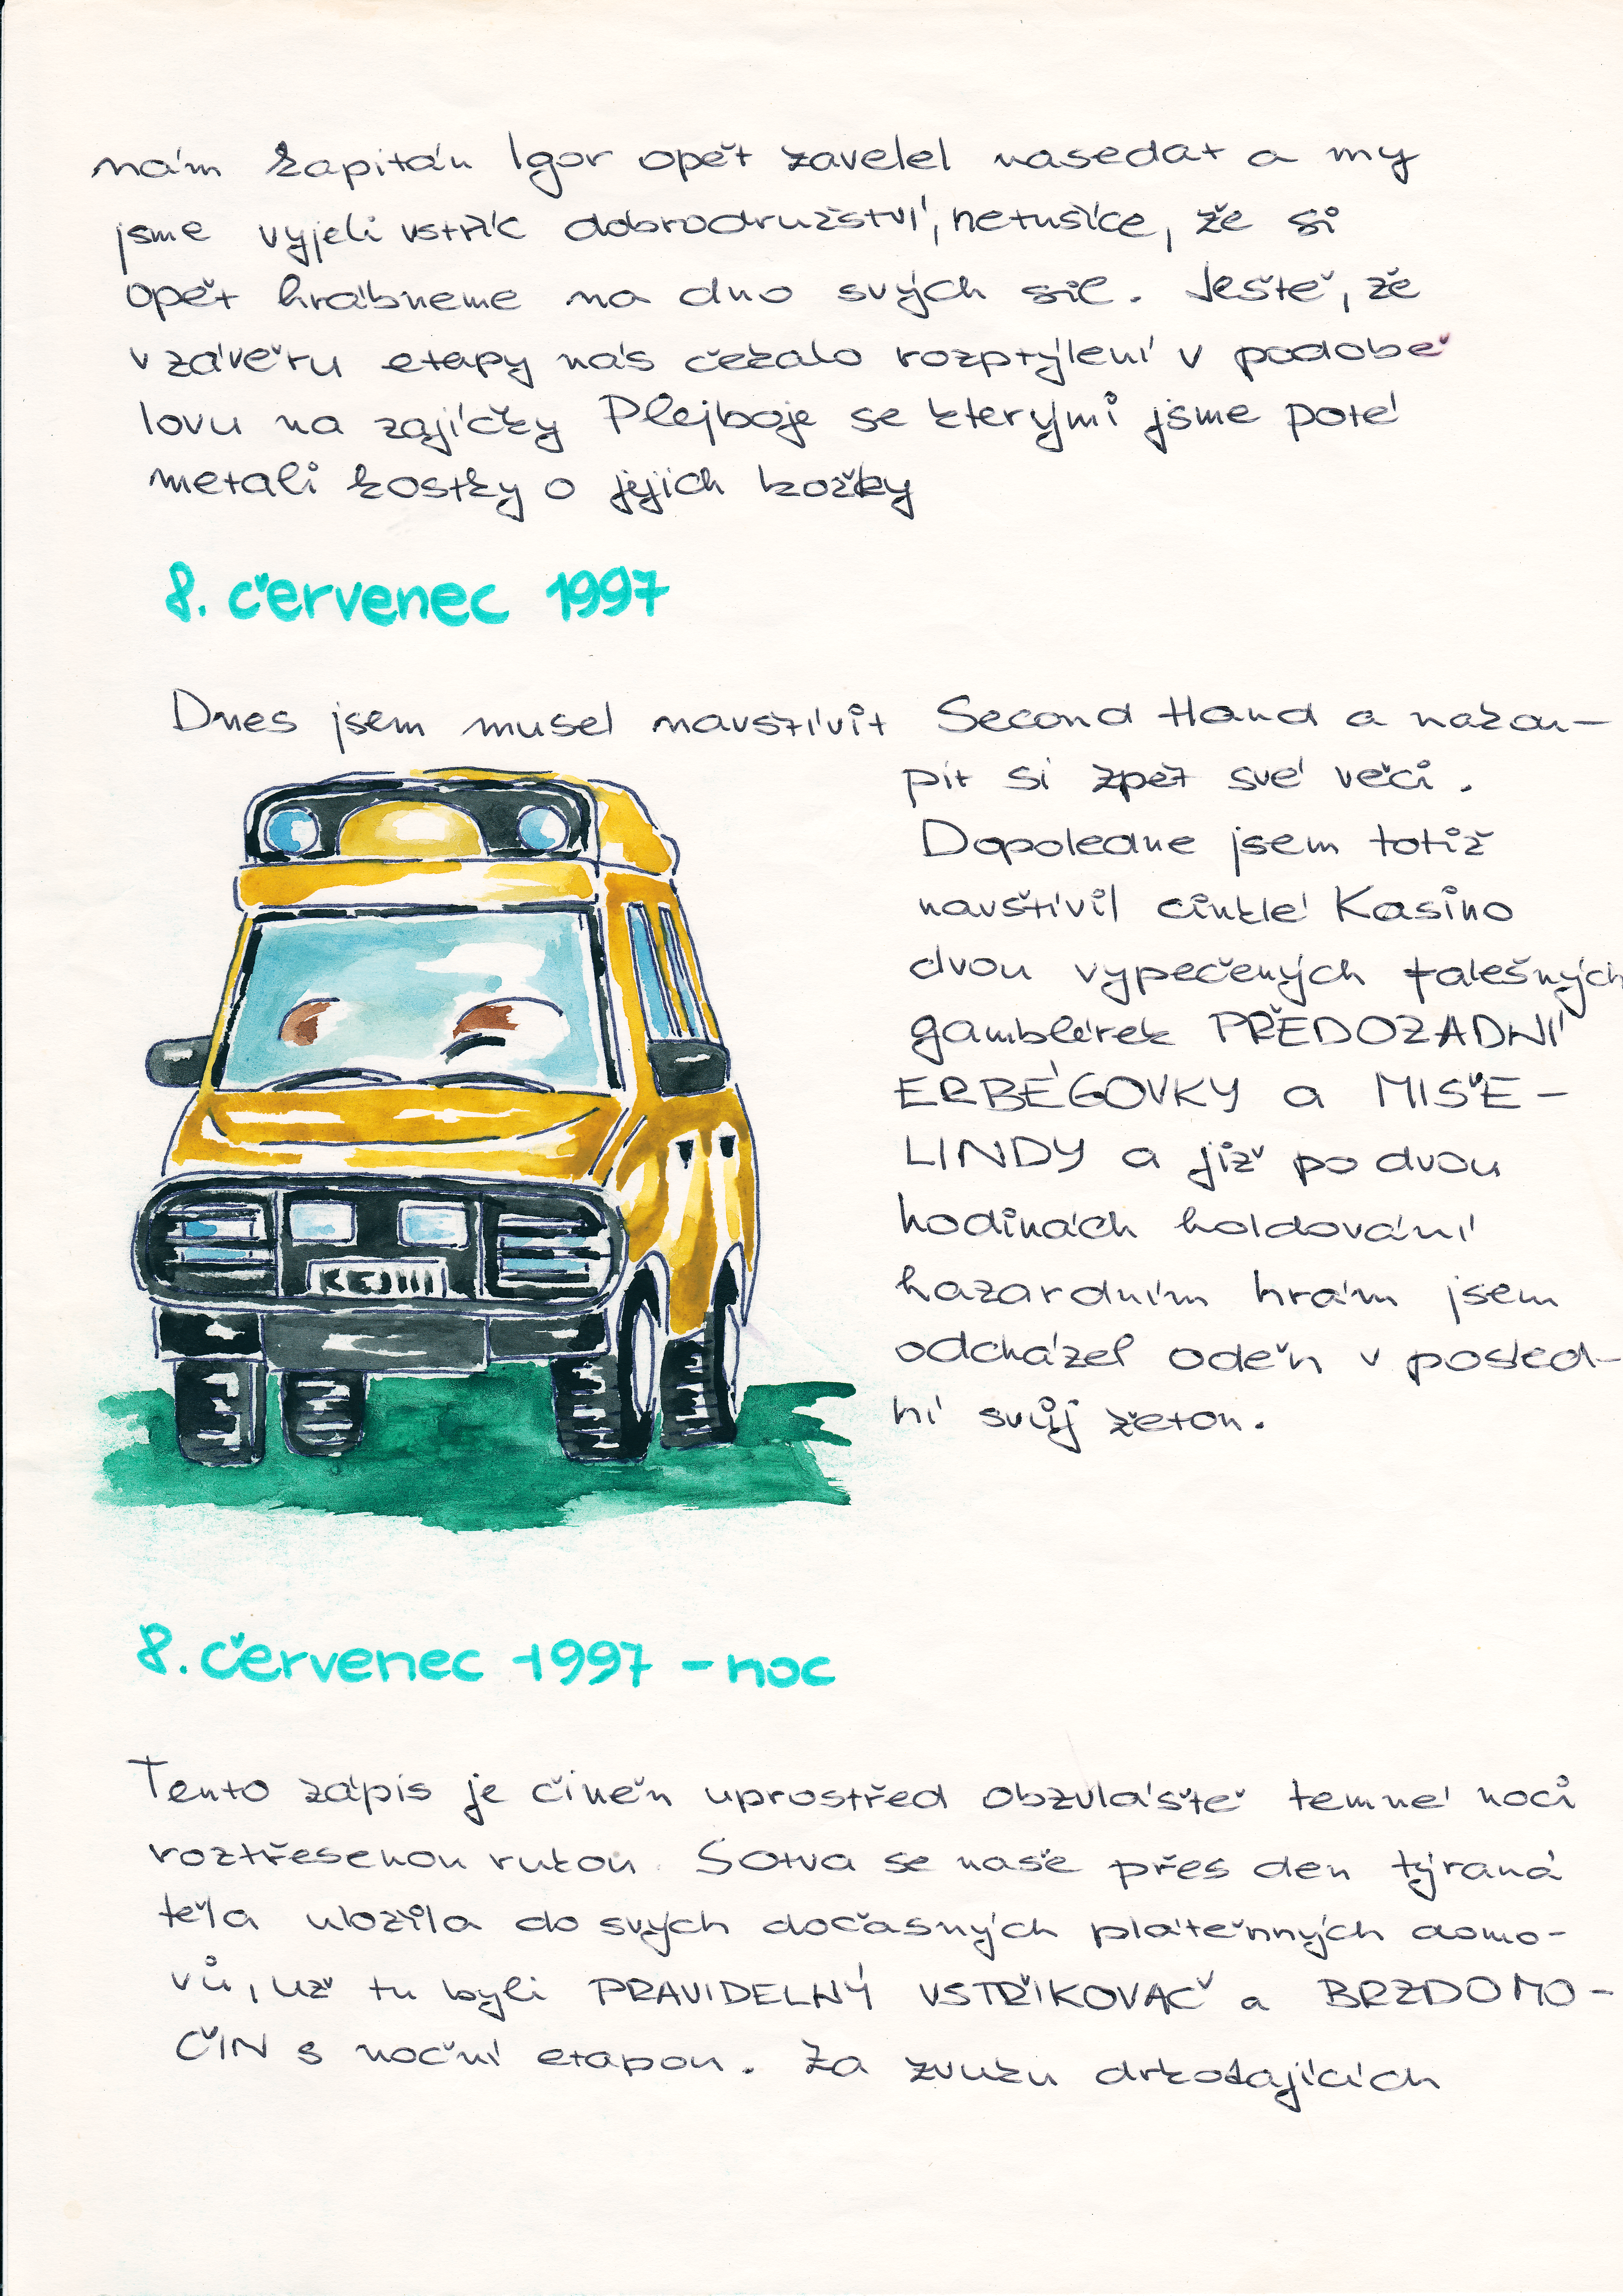 nám kapitán Igor opět zavelel nasedat a my
jsme vyjeli vstříc dobrodružství, netušíce, že si
opět hrábneme na dno svých sil. Ještě, že
v závěru etapy nás čekalo rozptýlení v podobě
lovu na zajíčky Plejboje se kterými jsme poté
metali kostky o jejich kožky
8. červenec 1997
Dnes jsem musel navštívit Second Hand a nakou-
pit si zpět své věci.
Dopoledne jsem totiž
navštívil cinklé Kasino
dvou vypečených falešných
gamblérek PŘEDOZADNÍ
ERBÉGOVKY a MIŠE-
LINDY a již po dvou
hodinách holdování
hazardním hrám jsem
odcházel oděn v posled-
ní svůj žeton.
KEJ111
8. červenec 1997 - noc
Tento zápis je činěn uprostřed obzvláště temné noci
roztřesenou rukou. Sotva se naše přes den týraná
těla uložila do svých dočasných plátěnných domo-
vů, už tu byli PRAVIDELNÝ VSTŘIKOVAČ a BRZDOMO-
ČIN s noční etapou. Za zvuku drkotajících